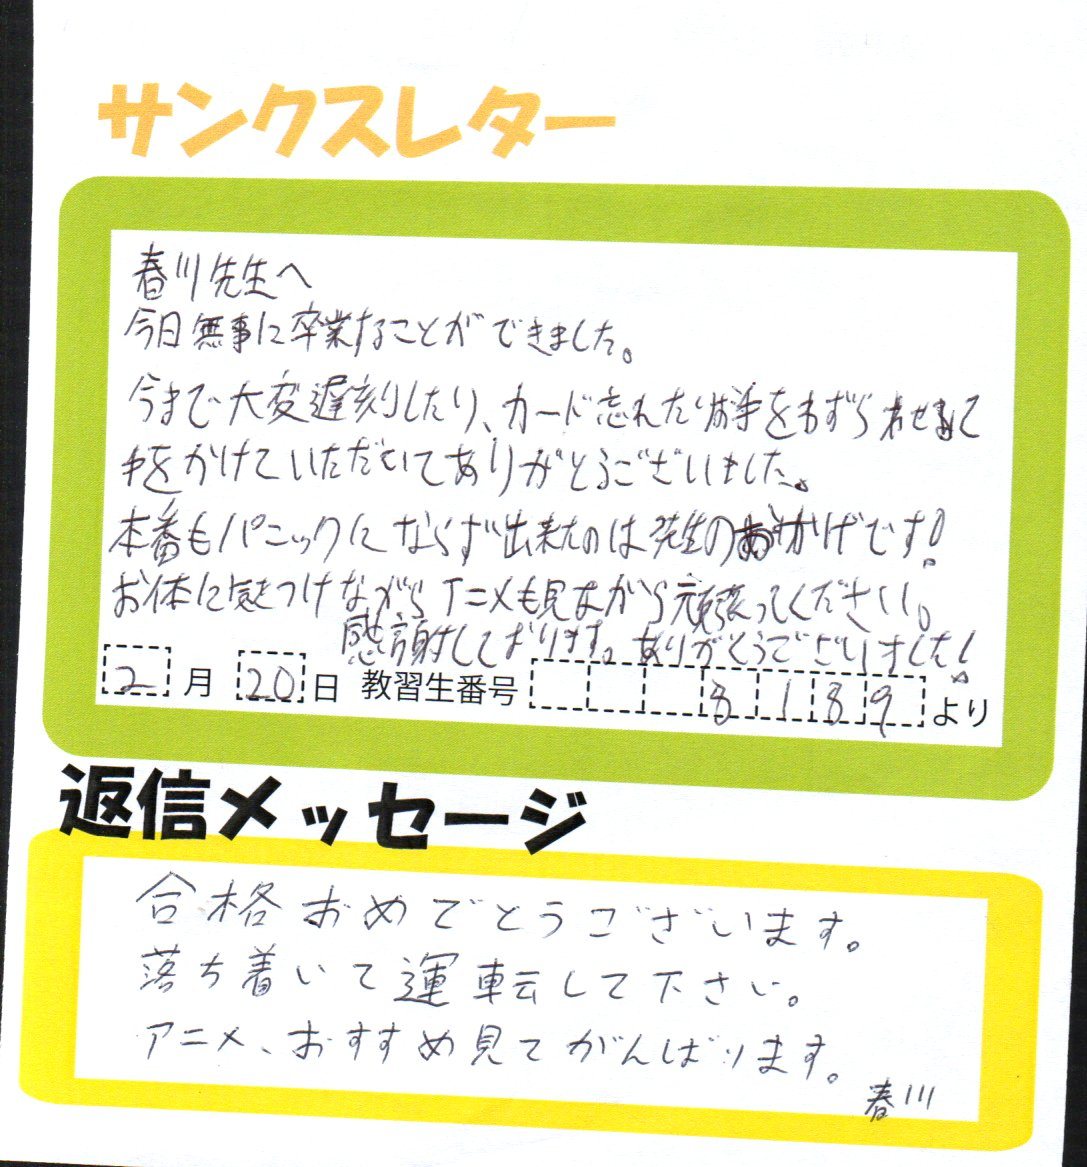 サンクスレター
春川先生へ
今日無事に卒業することができました。
今まで大変遅刻したり、カード忘れたりお手をわずらわせまして
手をかけていただいてありがとうございました。
本番もパニックにならず出来たのは先生のおかげです!
お体に気をつけながらアニメも見ながら頑張ってください。
感謝しております。ありがとうございました!
2月20日 教習生番号 8189より
返信メッセージ
合格おめでとうございます。
落ち着いて運転して下さい。
アニメ、おすすめ見てがんばります。
春川